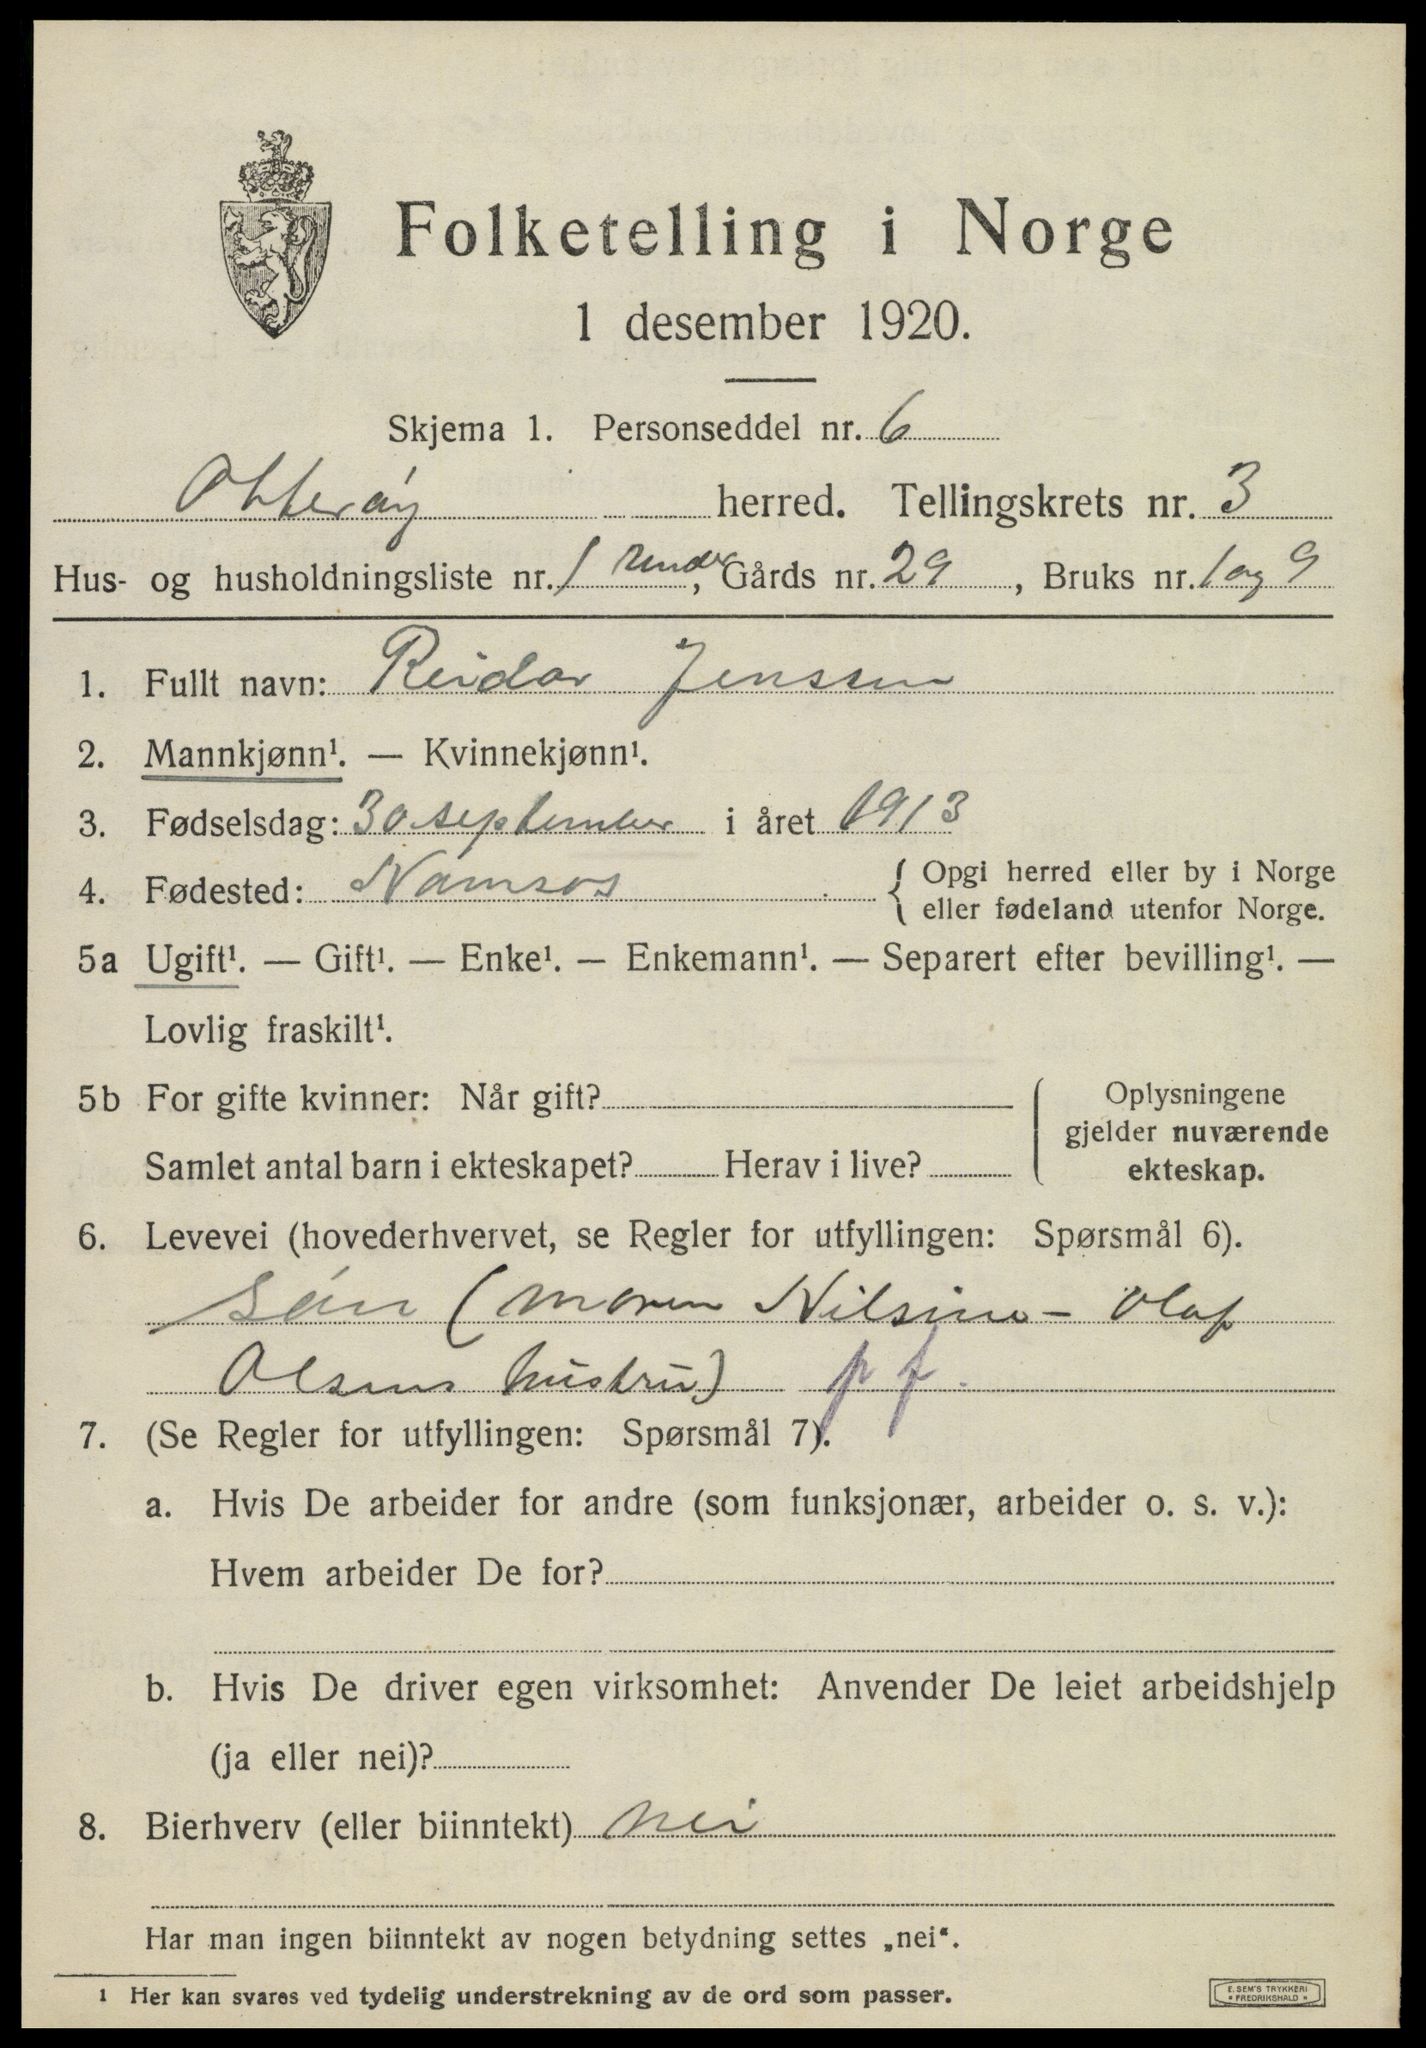 Folketelling i Norge
1 desember 1920.
Skjema 1. Personseddel nr. 6
Otterøy herred. Tellingskrets nr. 3
Hus- og husholdningsliste nr. 1, Gårds nr. 29, Bruks nr. 1 og 9
1. Fullt navn: Reidar Jenssen
2. Mannkjønn¹. — Kvinnekjønn¹.
3. Fødselsdag: 30 september i året 1913
4. Fødested: Namsos { Opgi herred eller by i Norge
eller fødeland utenfor Norge.
5a Ugift¹. — Gift¹. — Enke¹. — Enkemann¹. — Separert efter bevilling¹. —
Lovlig fraskilt¹.
5b For gifte kvinner: Når gift?
Samlet antal barn i ekteskapet? Herav i live?
Oplysningene
gjelder nuværende
ekteskap.
6. Levevei (hovederhvervet, se Regler for utfyllingen: Spørsmål 6).
Søn (moren Nilsine - Olaf
Olsens hustru) p f.
7. (Se Regler for utfyllingen: Spørsmål 7).
a. Hvis De arbeider for andre (som funksjonær, arbeider o. s. v.):
Hvem arbeider De for?
b. Hvis De driver egen virksomhet: Anvender De leiet arbeidshjelp
(ja eller nei)?
8. Bierhverv (eller biinntekt) nei
Har man ingen biinntekt av nogen betydning settes „nei“.
¹ Her kan svares ved tydelig understrekning av de ord som passer.
E. SEM'S TRYKKERI
* FREDRIKSHALD *